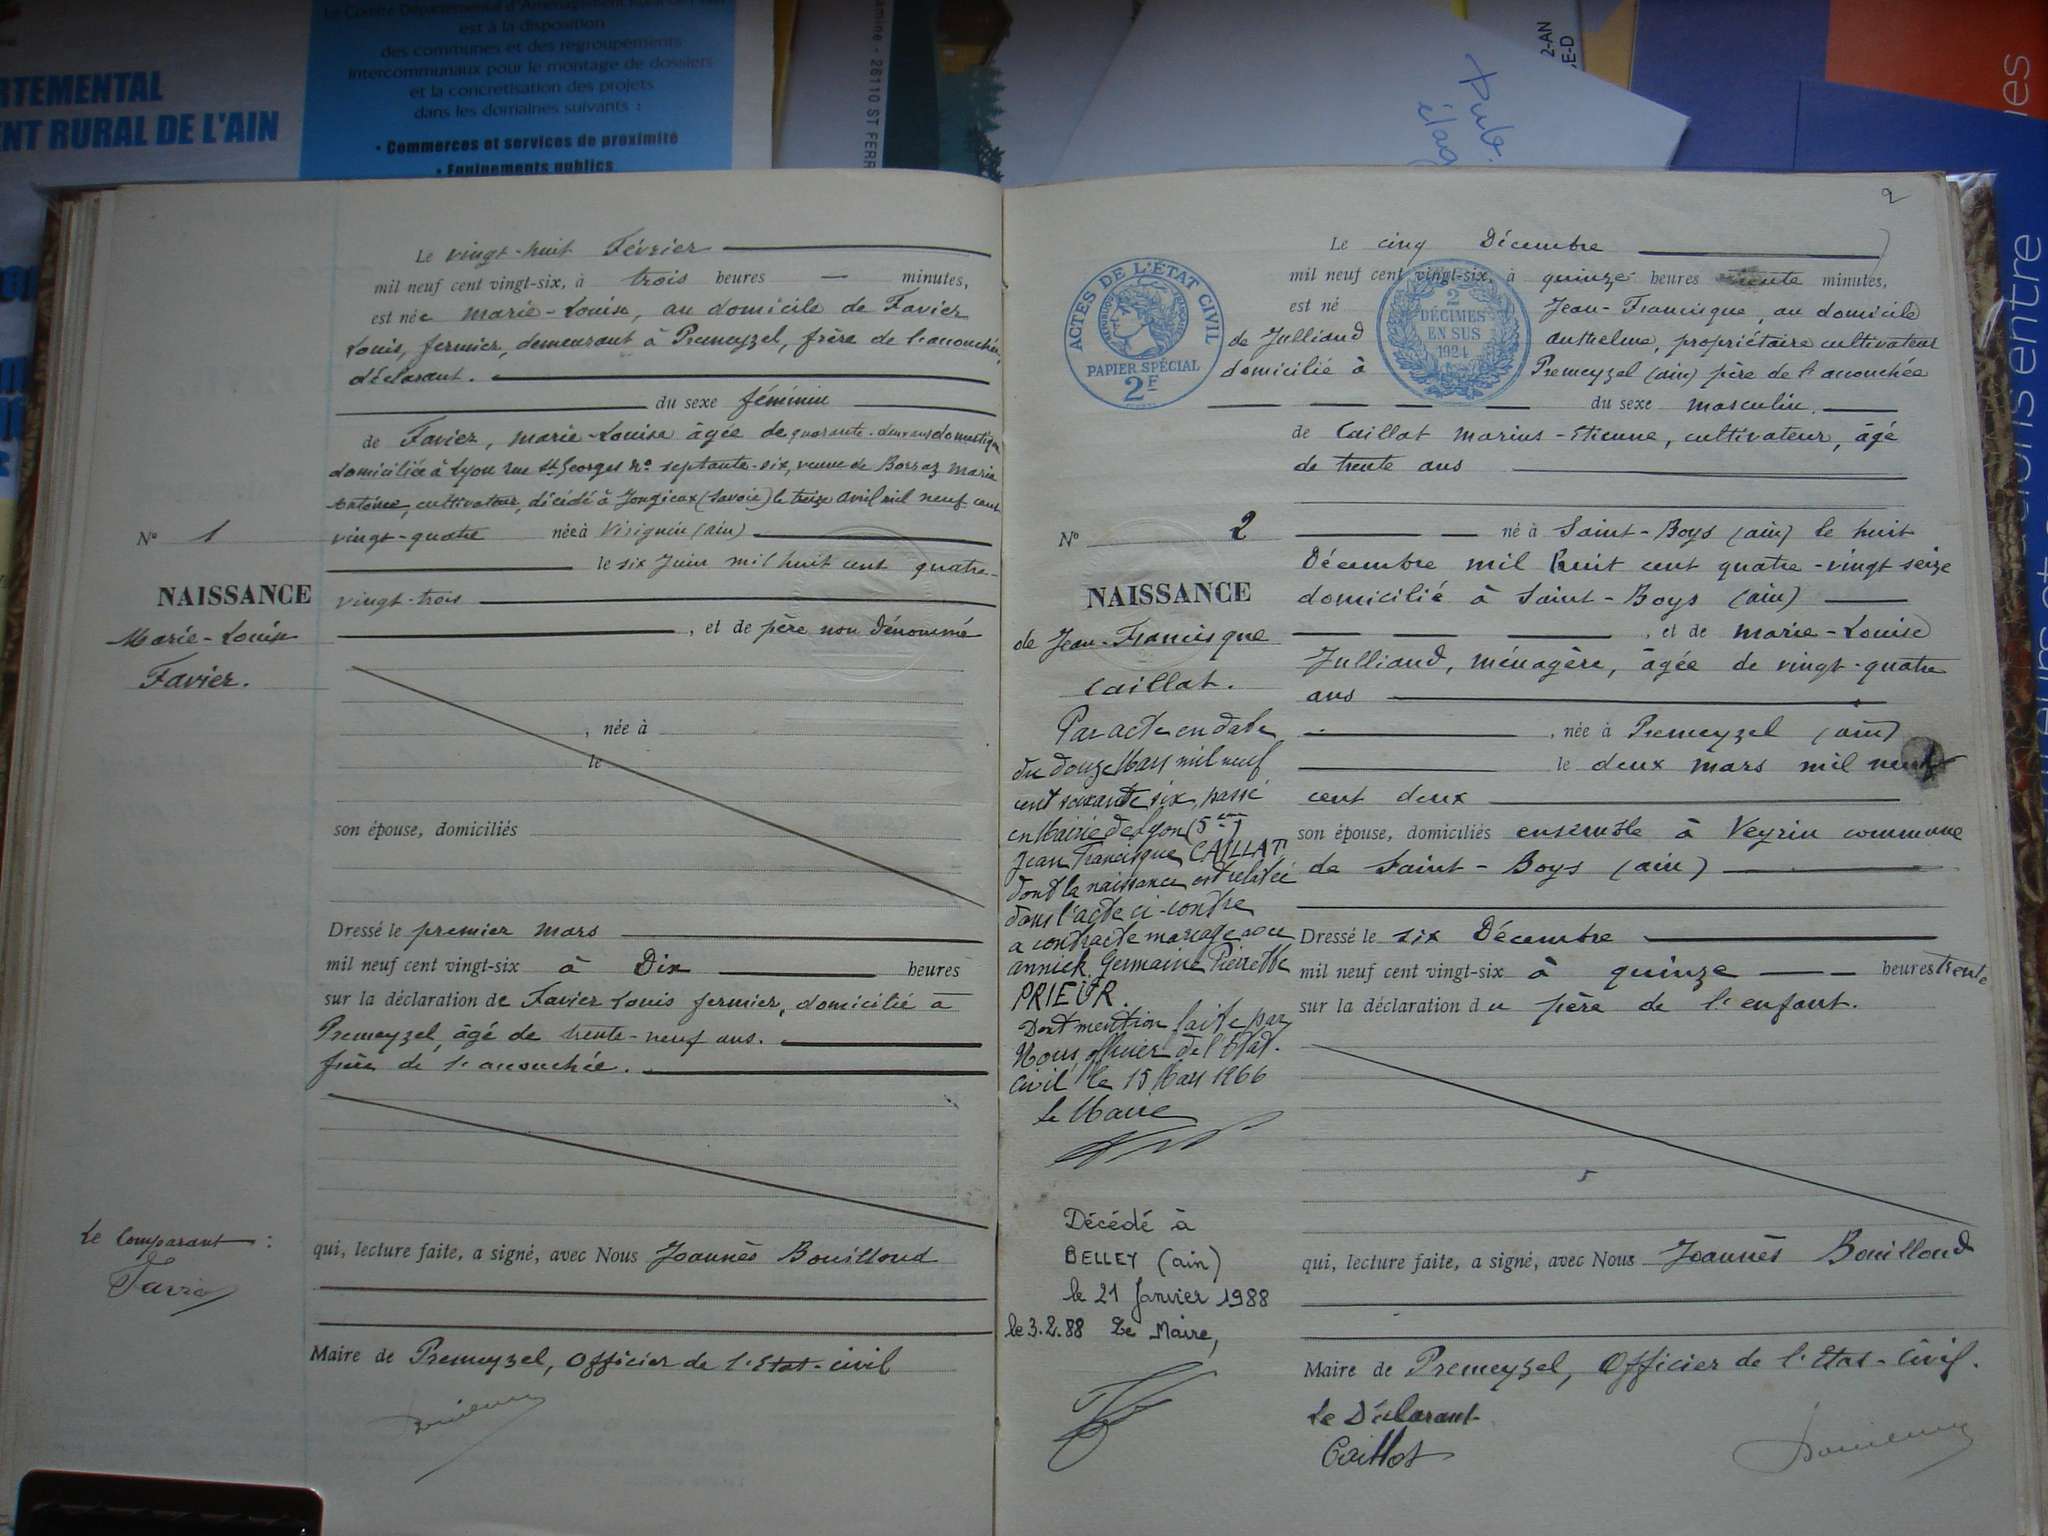 Le Comité Départemental d'Aménagement Rural de l'Ain
est à la disposition
des communes et des regroupements
intercommunaux pour le montage de dossiers
et la concrétisation des projets
dans les domaines suivants :
• Commerces et services de proximité
• Equipements publics
RTEMENTAL
NT RURAL DE L'AIN
26110 ST FERR
2-AN
CE-D
Pub.
élag
ns entre
Le vingt-huit Février
mil neuf cent vingt-six, à trois heures — minutes,
est née Marie-Louise, au domicile de Favier
Louis, fermier, demeurant à Premeyzel, frère de l'accouchée,
déclarant.
du sexe féminin
de Favier, Marie-Louise âgée de quarante-deux ans domestique
domiciliée à Lyon rue St Georges No septante-six, veuve de Borraz Marie
Antoine, cultivateur, décédé à Jongieux (Savoie) le treize avril mil neuf cent
vingt-quatre née à Virignin (ain)
le six Juin mil huit cent quatre-
vingt-trois
, et de père non dénommé
, née à
le
son épouse, domiciliés
Dressé le premier mars
mil neuf cent vingt-six à Dix heures
sur la déclaration de Favier Louis fermier, domicilié à
Premeyzel, âgé de trente-neuf ans.
frère de l'accouchée.
qui, lecture faite, a signé, avec Nous Joannès Bouilloud
Maire de Premeyzel, Officier de l'Etat-civil
N° 1
NAISSANCE
Marie-Louise
Favier.
Le Comparant :
Favier
2
ACTES DE L'ÉTAT CIVIL
PAPIER SPÉCIAL
2F
2
DÉCIMES
EN SUS
1924
Le cinq Décembre
mil neuf cent vingt-six, à quinze heures trente minutes,
est né Jean-Francisque, au domicile
de Julliand anthelme, propriétaire cultivateur
domicilié à Premeyzel (ain) père de l'accouchée
du sexe masculin.
de Caillat Marius-Etienne, cultivateur, âgé
de trente ans
né à Saint-Boys (ain) le huit
Décembre mil huit cent quatre-vingt seize
domicilié à Saint-Boys (ain)
, et de Marie-Louise
Julliand, ménagère, âgée de vingt-quatre
ans
, née à Premeyzel (ain)
le deux mars mil neuf
cent deux
son épouse, domiciliés ensemble à Veyrin commune
de Saint-Boys (ain)
Dressé le six Décembre
mil neuf cent vingt-six à quinze — — heures trente
sur la déclaration du père de l'enfant.
qui, lecture faite, a signé, avec Nous Joannès Bouilloud
Maire de Premeyzel, Officier de l'Etat-Civil.
Le Déclarant
Caillat
N° 2
NAISSANCE
de Jean-Francisque
Caillat.
Par acte en date
du douze Mars mil neuf
cent soixante six, passé
en Mairie de Lyon (5eme)
Jean Francisque CAILLAT
dont la naissance est relatée
dans l'acte ci-contre
a contracté mariage avec
annick Germaine Pierrette
PRIEUR.
Dont mention faite par
Nous officier de l'Etat.
civil le 15 Mars 1966
Le Maire
Décédé à
BELLEY (ain)
le 21 Janvier 1988
le 3.2.88 Le Maire,